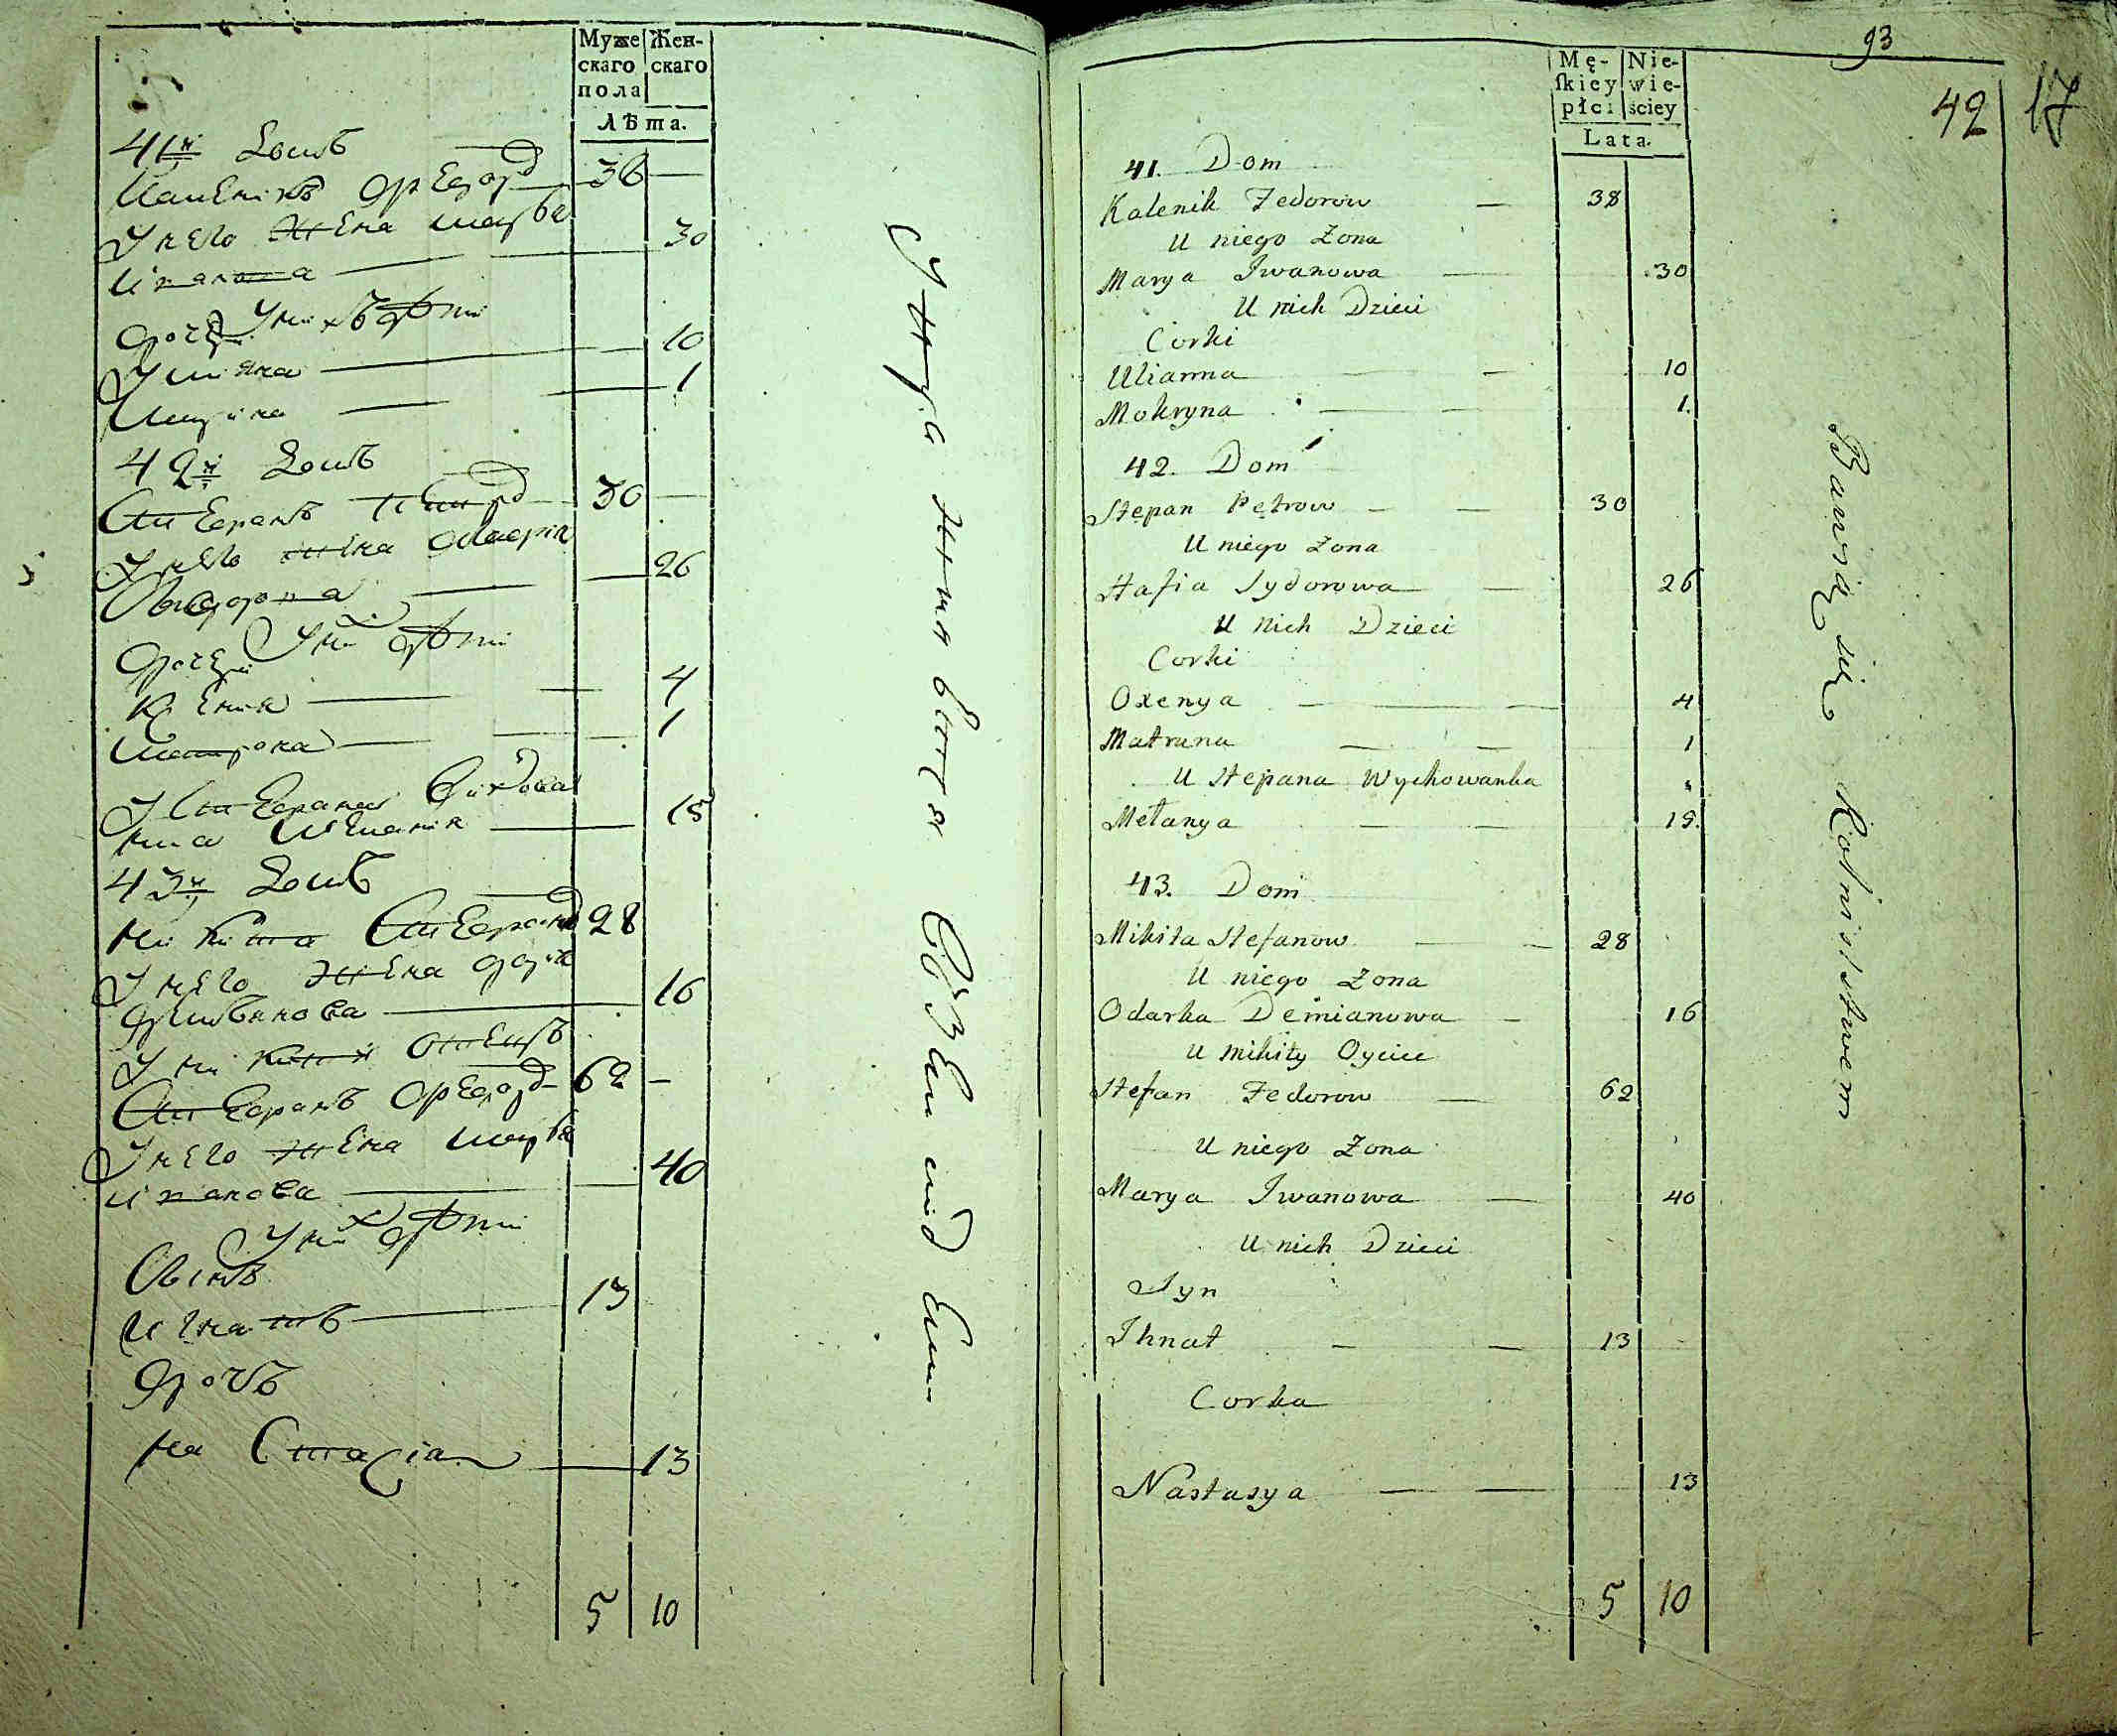 Муже Жен-
скаго скаго
пола
Лѣта.
41й Домъ
Каленікъ Федоров 38
У него жена Марья
Иванова 30
У них дѣти
дочери
Улияна 10
Мокрина 1
42й Домъ
Степанъ Петров 30
У него жена Агафия
Сидорова 26
У них дѣти
дочери
Ксения 4
Матрона 1
У Степана
Мелания 15
43й Домъ
Никита Степанов 28
У него жена Дария
Демьянова 16
У Никити отецъ
Степанъ Федоров 62
У него жена Марья
Иванова 40
У них дѣти
Сынъ
Игнатъ 13
Дочь
Настасия 13
5 10
93
42 17
Mę- Nie-
ſkiey wie-
płci ściey
Lata.
41. Dom
Kalenik Fedorow 38
U niego Zona
Marya Iwanowa 30
U nich Dzieci
Corki
Ulianna 10
Mokryna 1.
42. Dom
Stepan Petrow 30
U niego Zona
Hafia Sydorowa 26
U nich Dzieci
Corki
Oxenya 4
Matruna 1
U Stepana Wychowanka
Mełanya 15.
43. Dom
Mikita Stefanow 28
U niego Zona
Odarka Demianowa 16
U Mikity Oyciec
Stefan Fedorow 62
U niego Zona
Marya Iwanowa 40
U nich Dzieci
Syn
Ihnat 13
Corka
Nastasya 13
5 10
Bawią się Rolnistwem